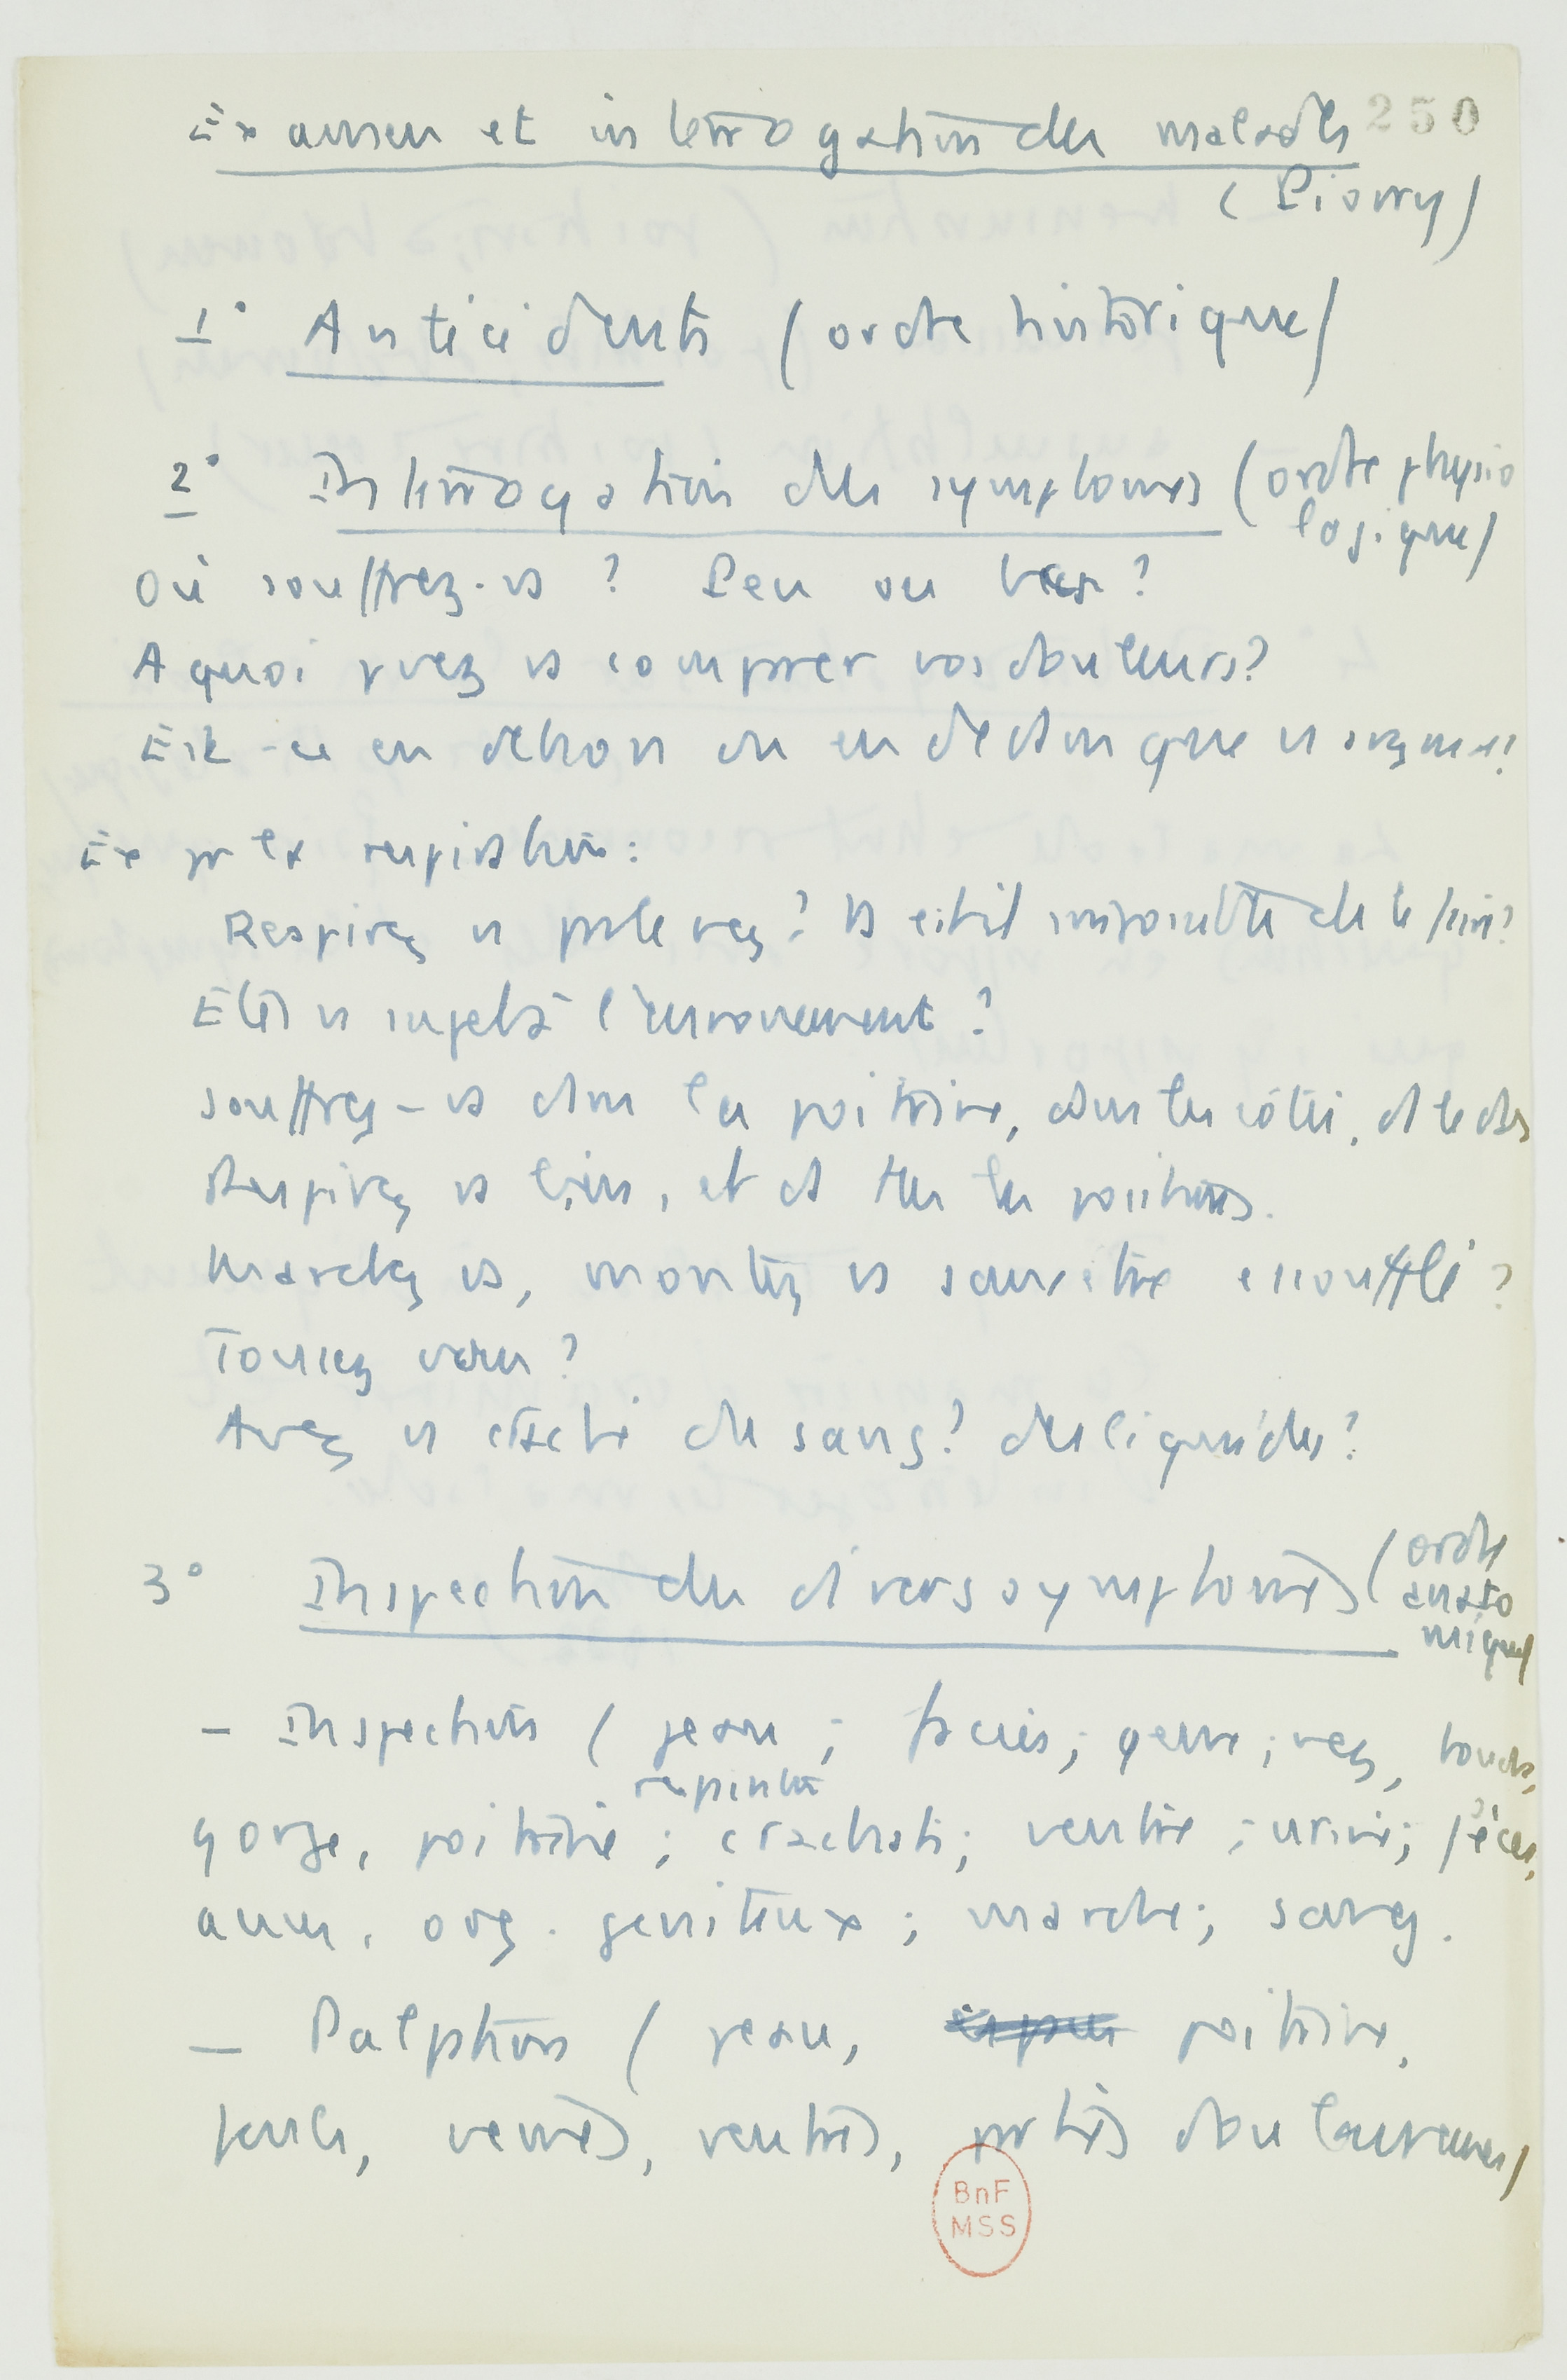 Examen et interrogation des malades 250
(Piorry)
1° Antécédents (ordre historique)
2° Interrogation des symptomes (ordre physio
logique)
Où souffrez-vs ? Peu ou bcp ?
A quoi pvez vs comparer vos douleurs ?
Est-ce en dehors ou en dedans que vs avez mal ?
Ex pr la respiration :
Respirez vs par le nez ? Vs est-il impossible de le faire ?
Etes vs sujet à l'enrouement ?
Souffrez-vs dans la poitrine, dans les côtés, ds le dos
Respirez vs bien, et ds ttes les positions.
Marchez vs, montez vs sans être essoufflé ?
Toussez vous ?
Avez vs craché du sang ? des liquides ?
3° Inspection des divers symptomes (ordre
anato
mique)
- Inspection (peau ; faciès ; yeux ; nez, bouche,
respiration
gorge, poitrine ; crachats ; ventre ; urine ; fèces,
anus, org. genitaux ; marche ; sang.
- Palpation (peau, poitrine,
pouls, veines, ventres, parties douloureuses)
BnF
MSS